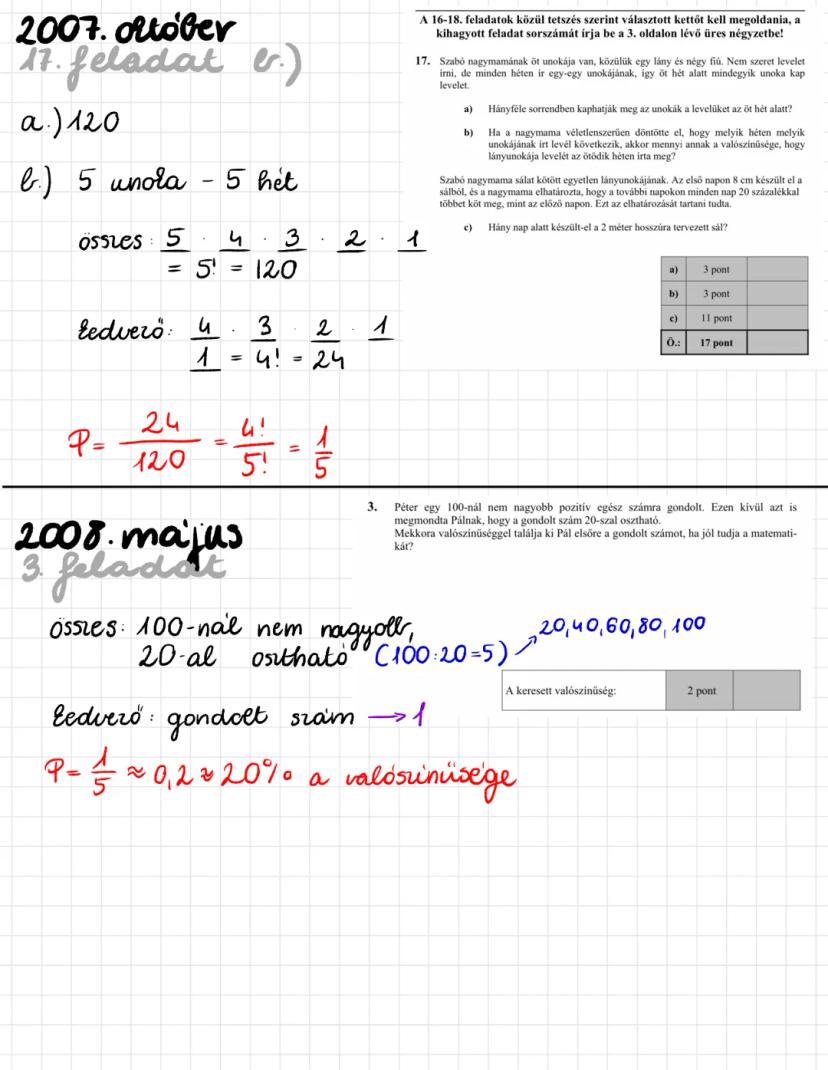 2007. október
17. feladat b.)
a.) 120
b.) 5 unoka - 5 hét
összes: 5 · 4 · 3 · 2 · 1
= 5! = 120
kedvező: 4 · 3 · 2 · 1
1 = 4! = 24
P = 24/120 = 4!/5! = 1/5
A 16-18. feladatok közül tetszés szerint választott kettőt kell megoldania, a
kihagyott feladat sorszámát írja be a 3. oldalon lévő üres négyzetbe!
17. Szabó nagymamának öt unokája van, közülük egy lány és négy fiú. Nem szeret levelet
írni, de minden héten ír egy-egy unokájának, így öt hét alatt mindegyik unoka kap
levelet.
a) Hányféle sorrendben kaphatják meg az unokák a levelüket az öt hét alatt?
b) Ha a nagymama véletlenszerűen döntötte el, hogy melyik héten melyik
unokájának írt levél következik, akkor mennyi annak a valószínűsége, hogy
lányunokája levelét az ötödik héten írta meg?
Szabó nagymama sálat kötött egyetlen lányunokájának. Az első napon 8 cm készült el a
sálból, és a nagymama elhatározta, hogy a további napokon minden nap 20 százalékkal
többet köt meg, mint az előző napon. Ezt az elhatározását tartani tudta.
c) Hány nap alatt készült-el a 2 méter hosszúra tervezett sál?
a) 3 pont
b) 3 pont
c) 11 pont
Ö.: 17 pont
2008. május
3. feladat
3. Péter egy 100-nál nem nagyobb pozitív egész számra gondolt. Ezen kívül azt is
megmondta Pálnak, hogy a gondolt szám 20-szal osztható.
Mekkora valószínűséggel találja ki Pál elsőre a gondolt számot, ha jól tudja a matemati-
kát?
összes: 100-nál nem nagyobb,
20-al osztható (100:20=5) → 20, 40, 60, 80, 100
A keresett valószínűség: 2 pont
kedvező: gondolt szám → 1
P = 1/5 ≈ 0,2 ≈ 20% a valószinüsége